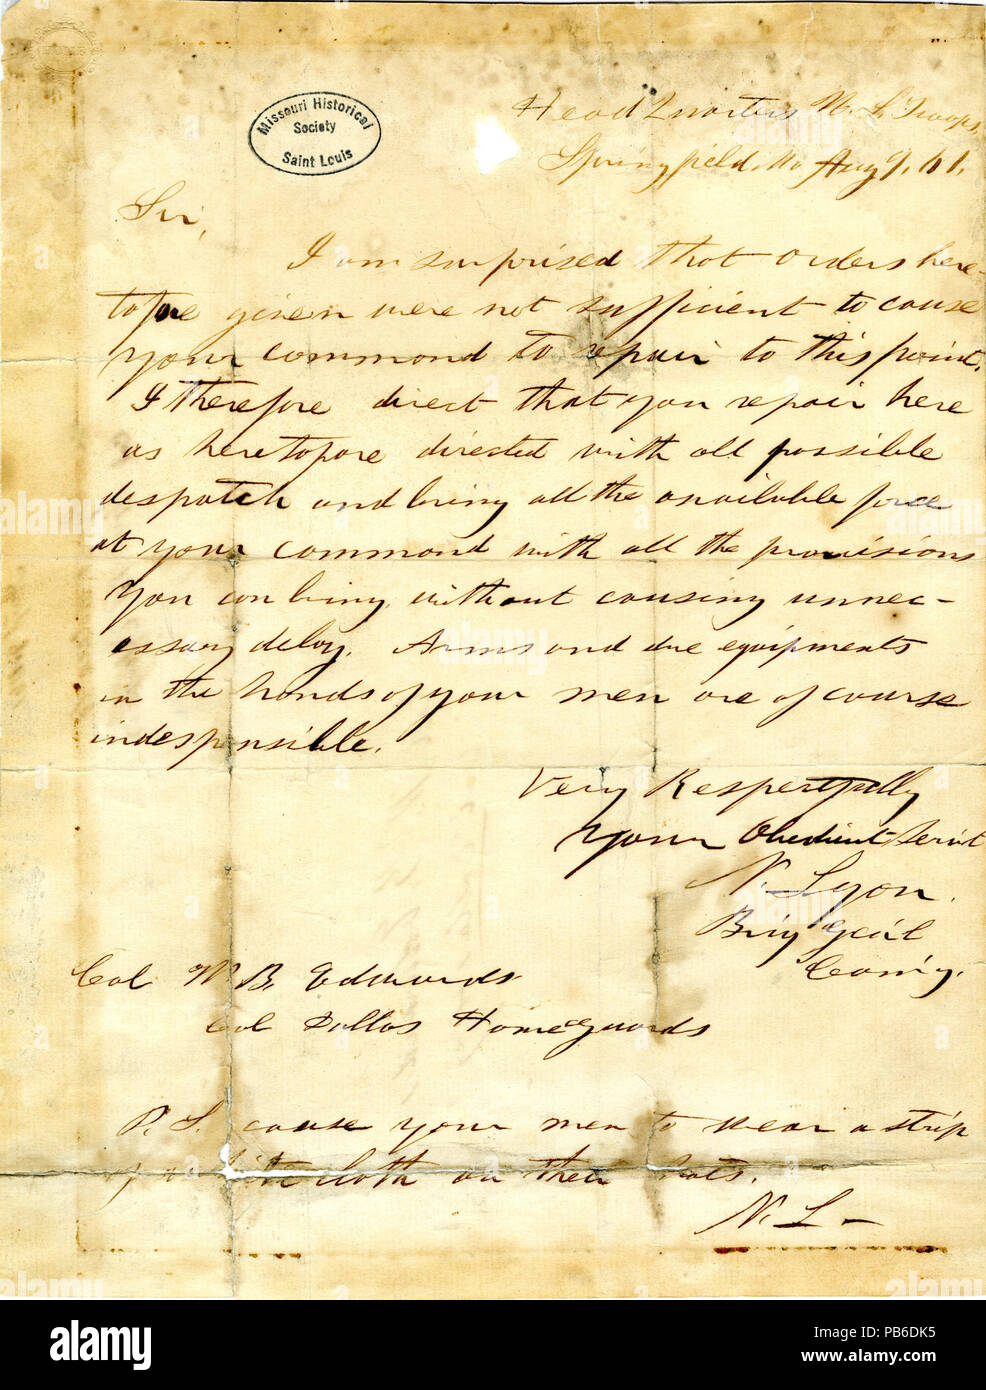 Missouri Historical
Society
Saint Louis
Head Quarters U. S. Troops
Springfield. Mo Aug 9. 61.
Sir,
I am surprised that orders here-
tofore given were not sufficient to cause
your command to repair to this point.
I therefore direct that you repair here
as heretofore directed with all possible
despatch and bring all the available force
at your command with all the provisions
you can bring without causing unnec-
essary delay. Arms and due equipments
in the hands of your men are of course
indespensible.
Very Respectfully
your Obedient Servt
N. Lyon.
Brig Genl
Com'g.
Col W B. Edwards
Col Dallas Home Guards
P. S. cause your men to wear a strip
of white cloth on their hats.
N. L -
alamy
Image ID: PB6DK5
www.alamy.com